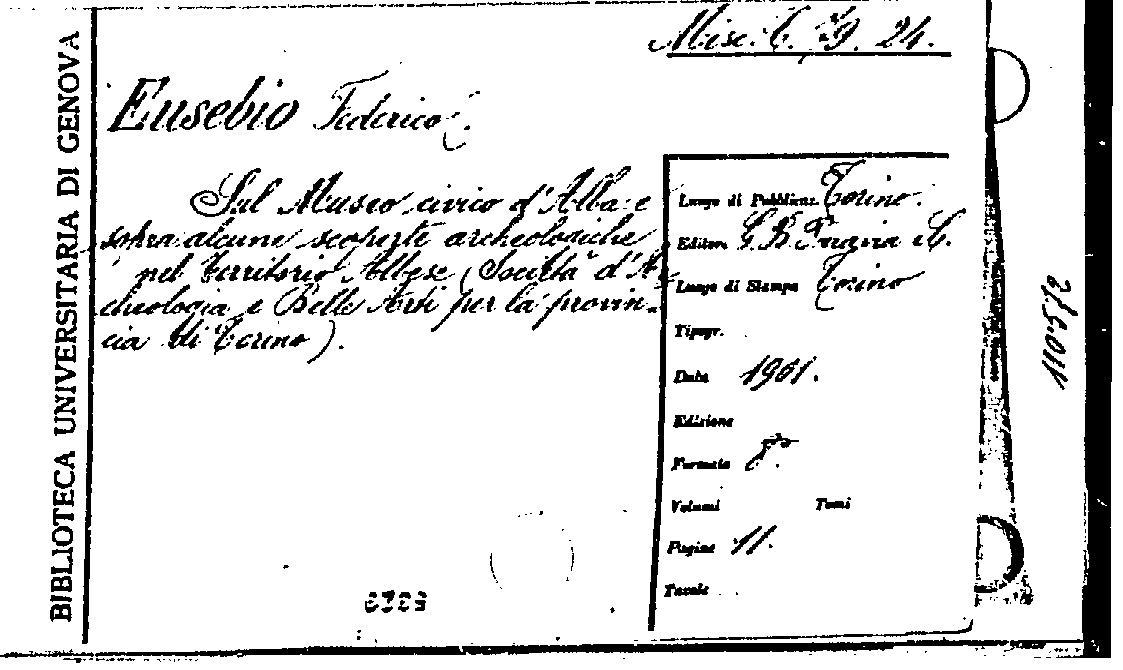 BIBLIOTECA UNIVERSITARIA DI GENOVA
Misc. C. 24.
Eusebio Federico.
Sul Museo civico d'Alba e
sopra alcune scoperte archeologiche
nel territorio Albese (Società d'Ar-
cheologia e Belle Arti per la provin-
cia di Torino).
Luogo di Pubblicaz. Torino.
Editore G. B. Paravia C.
Luogo di Stampa Torino
Tipogr.
Data 1901.
Edizione
Formato 8°.
Volumi Tomi
Pagine 11.
Tavole